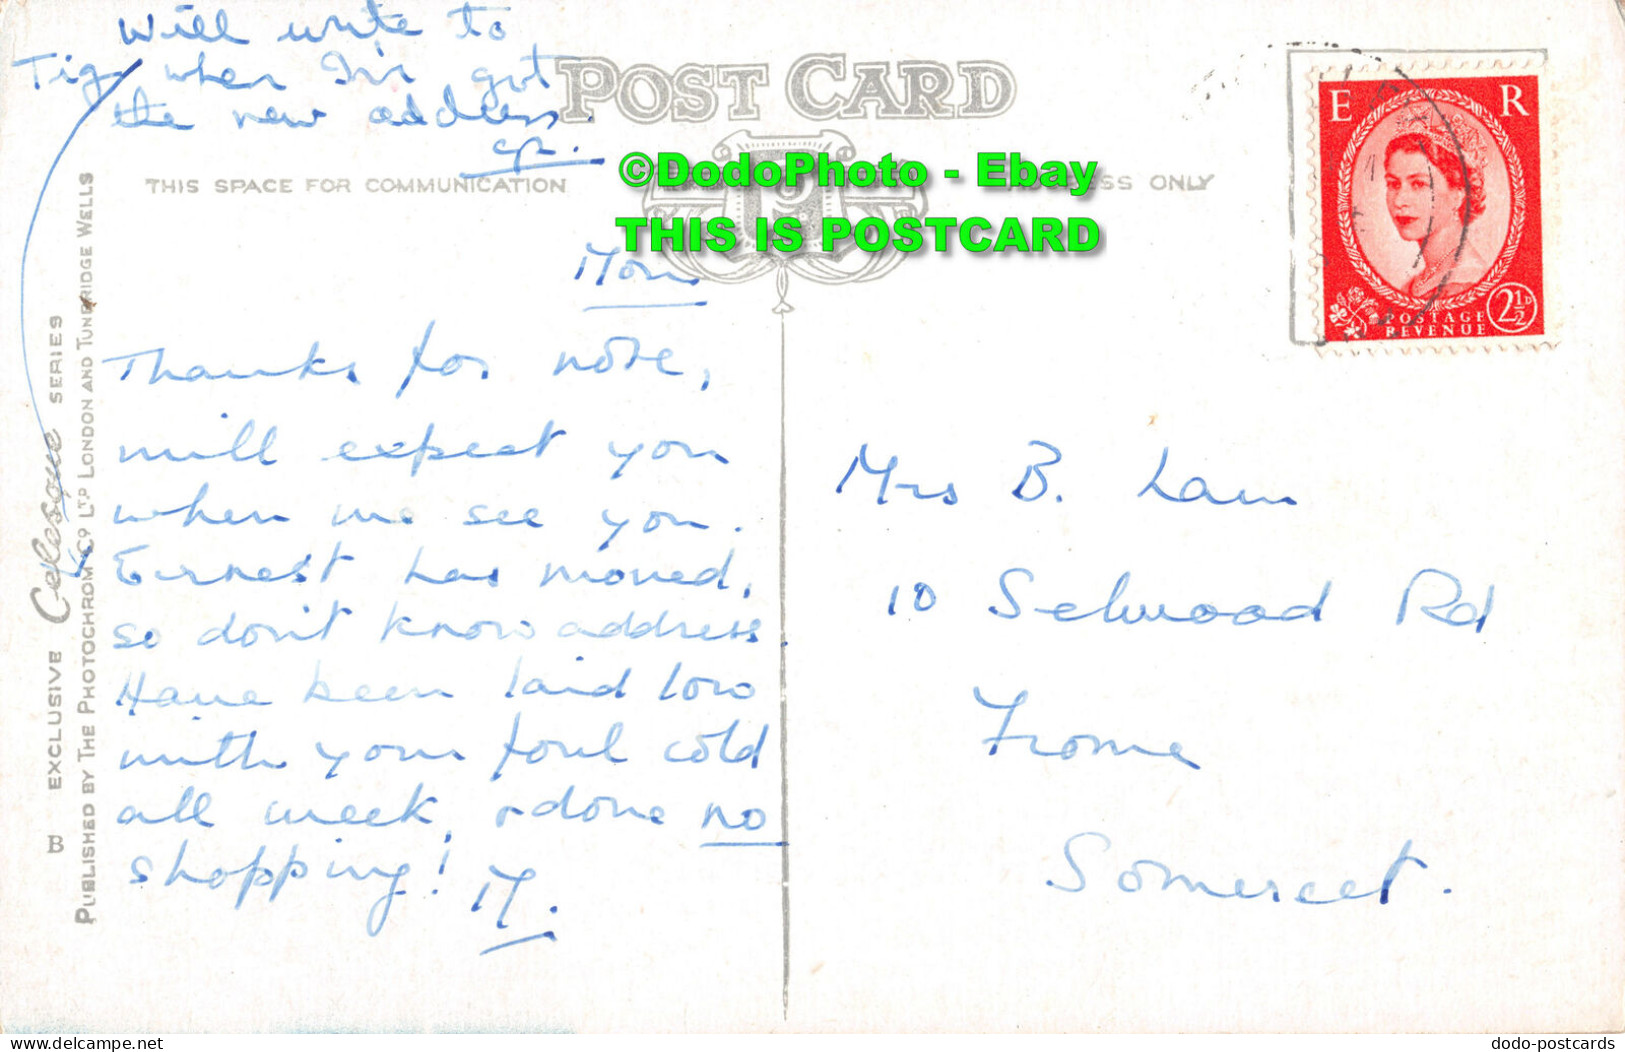 Will write to
Tig when I've got
the new address.
POST CARD
THIS SPACE FOR COMMUNICATION
ESS ONLY
©DodoPhoto - Ebay
THIS IS POSTCARD
E R
POSTAGE
REVENUE
2½D
Mon
Thanks for note,
will expect you
when we see you.
Ernest has moved,
so don't know address.
Have been laid low
with your foul cold
all week, & done no
shopping! M.
Mrs B.
10 Selwood Rd
Frome
Somerset.
B EXCLUSIVE Celesque SERIES
PUBLISHED BY THE PHOTOCHROM CO LTD LONDON AND TUNBRIDGE WELLS
My Postcard
dodo-postcards